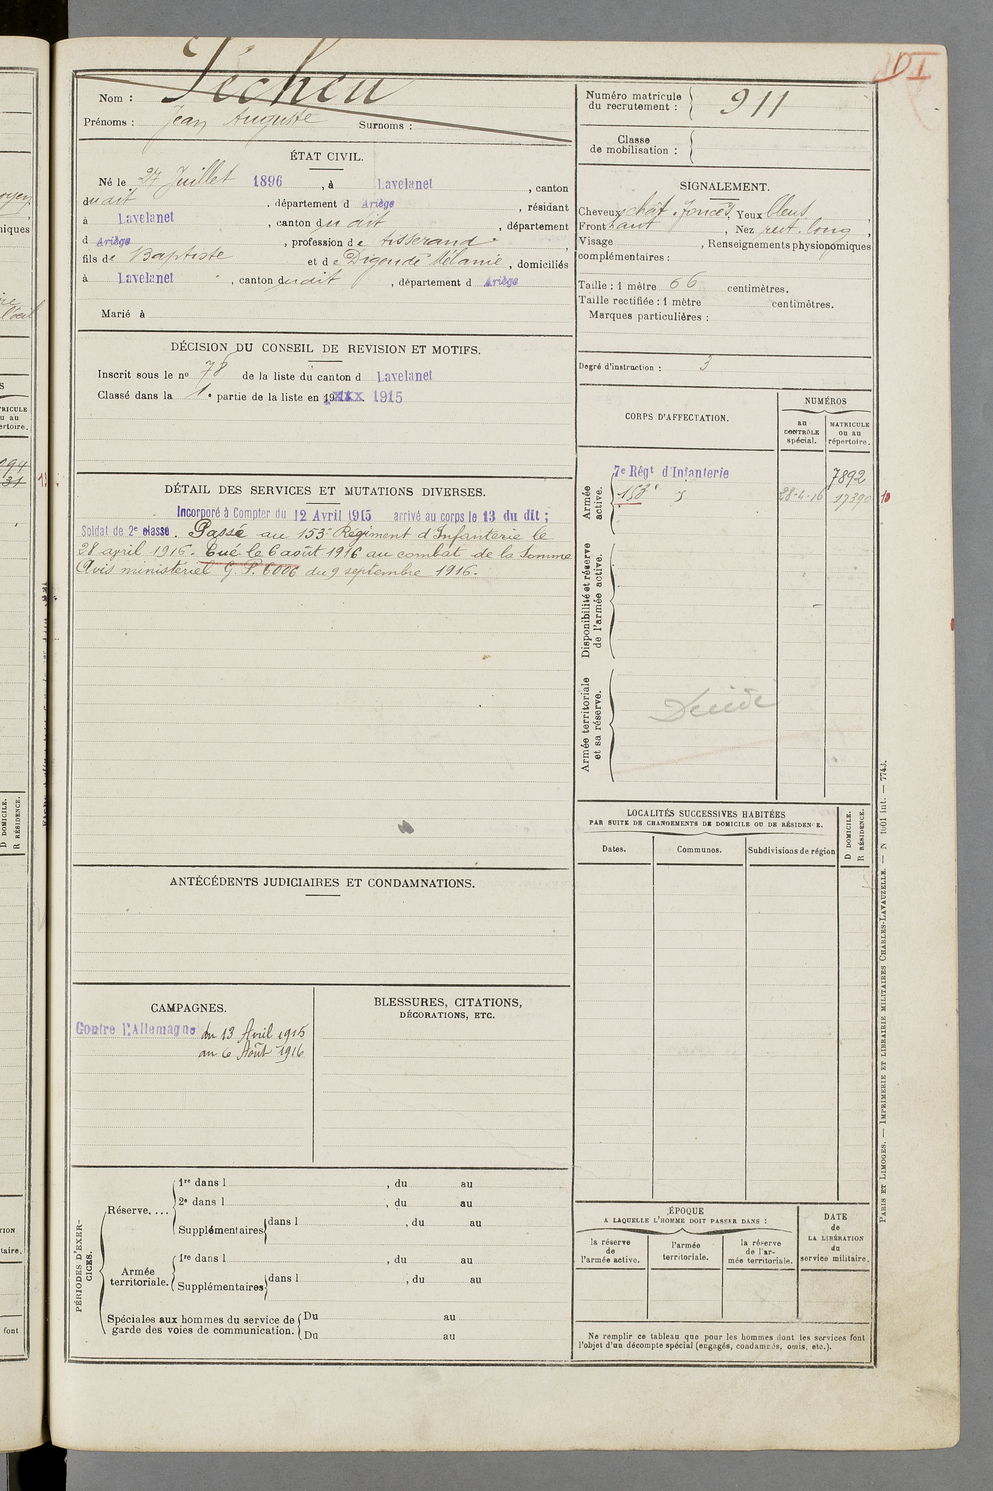 Nom : Pécheu
Prénoms : Jean Auguste Surnoms :
Numéro matricule du recrutement : 911
Classe de mobilisation :
ÉTAT CIVIL.
Né le 27 Juillet 1896, à Lavelanet, canton
dudit, département d Ariège, résidant
à Lavelanet, canton dudit, département
d Ariège, profession de tisserand
fils de Baptiste et de Digeudé Mélanie, domiciliés
à Lavelanet, canton dudit, département d Ariège
Marié à
SIGNALEMENT.
Cheveux chât. foncés, Yeux bleus,
Front haut, Nez rect. long,
Visage , Renseignements physionomiques
complémentaires :
Taille : 1 mètre 66 centimètres.
Taille rectifiée : 1 mètre centimètres.
Marques particulières :
Degré d'instruction : 3
DÉCISION DU CONSEIL DE REVISION ET MOTIFS.
Inscrit sous le nº 78 de la liste du canton d Lavelanet
Classé dans la 1e partie de la liste en 1915
CORPS D'AFFECTATION.
NUMÉROS
au CONTRÔLE spécial.
MATRICULE ou au répertoire.
Armée active.
7e Régt d'Infanterie 7892
153e 28-4-16 17390
Disponibilité et réserve de l'armée active.
Armée territoriale et sa réserve.
Décédé
DÉTAIL DES SERVICES ET MUTATIONS DIVERSES.
Incorporé à Compter du 12 Avril 1915 arrivé au corps le 13 du dit ;
Soldat de 2e classe. Passé au 153e Régiment d'Infanterie le
28 april 1916. Tué le 6 août 1916 au combat de la Somme
Avis ministériel G. P. 6006 du 9 septembre 1916.
LOCALITÉS SUCCESSIVES HABITÉES
PAR SUITE DE CHANGEMENTS DE DOMICILE OU DE RÉSIDENCE.
Dates.
Communes.
Subdivisions de région
D DOMICILE.
R RÉSIDENCE.
ANTÉCÉDENTS JUDICIAIRES ET CONDAMNATIONS.
CAMPAGNES.
Contre l'Allemagne du 13 Avril 1915
au 6 Août 1916
BLESSURES, CITATIONS,
DÉCORATIONS, ETC.
PÉRIODES D'EXERCICES.
Réserve....
1re dans l , du au
2e dans l , du au
Supplémentaires dans l , du au
Armée territoriale.
1re dans l , du au
Supplémentaires dans l , du au
Spéciales aux hommes du service de garde des voies de communication.
Du au
Du au
ÉPOQUE
A LAQUELLE L'HOMME DOIT PASSER DANS :
la réserve de l'armée active.
l'armée territoriale.
la réserve de l'armée territoriale.
DATE de LA LIBÉRATION du service militaire.
Ne remplir ce tableau que pour les hommes dont les services font
l'objet d'un décompte spécial (engagés, condamnés, omis, etc.).
PARIS ET LIMOGES. — IMPRIMERIE ET LIBRAIRIE MILITAIRES CHARLES-LAVAUZELLE. — N 1001 int. — 7743.